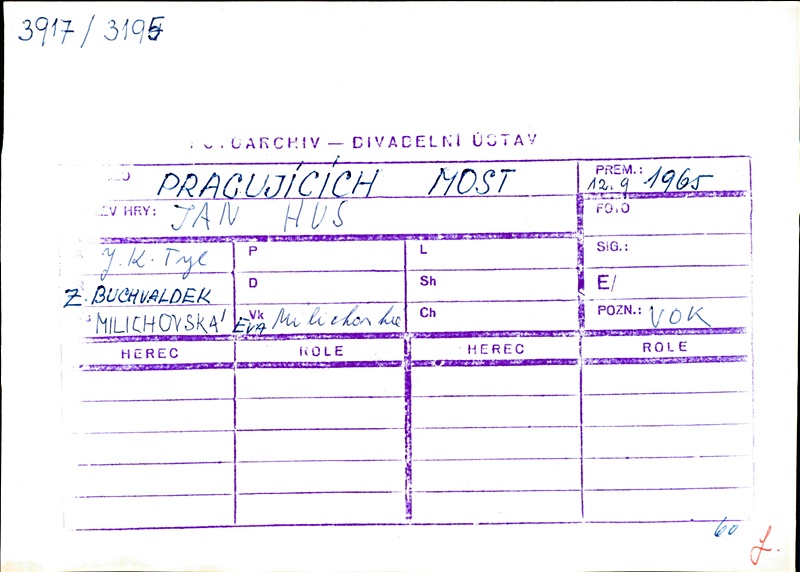 3917 / 3195
FOTOARCHIV — DIVADELNÍ ÚSTAV
PRACUJÍCÍCH MOST
PREM.: 12. 9 1965
EV HRY: JAN HUS
FOTO
J. K. Tyl
P
L
SIG.:
Z. BUCHVALDEK
D
Sh
E/
MILICHOVSKÁ
Vk EVA Milichovská
Ch
POZN.: VOK
HEREC ROLE HEREC ROLE
60